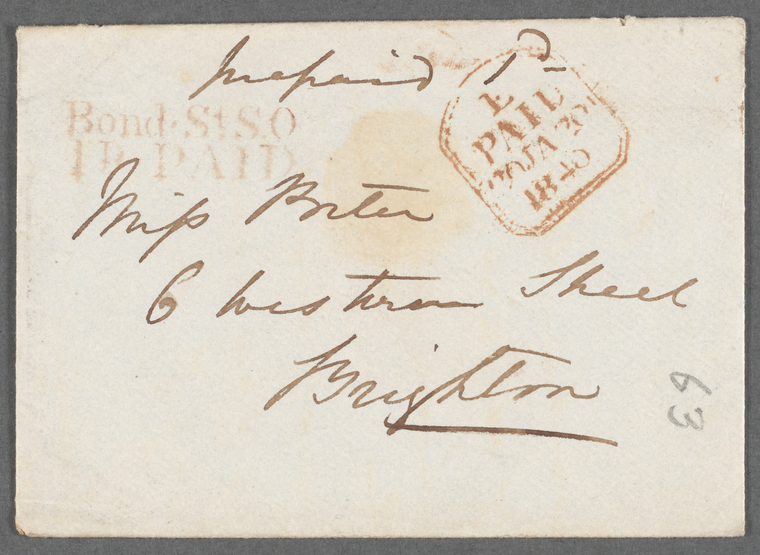 Prepaid 1d
Bond.St S.O
1P. PAID
E
PAID
20 JA 20
1840
Miss Porter
6 Western Street
Brighton
63